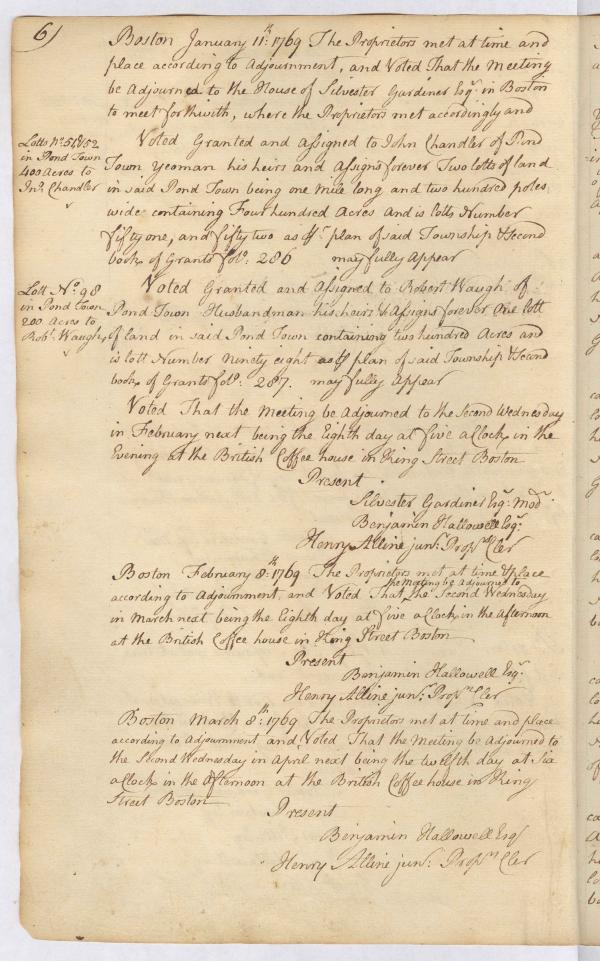 6)
Boston January 11th: 1769 The Proprietors met at time and
place according to Adjournment, and Voted That the Meeting
be Adjourned to the House of Silvester Gardiner Esqr in Boston
to meet forthwith, where the Proprietors met accordingly and
Lotts No. 51 & 52
in Pond Town
400 Acres to
Jno. Chandler
Voted Granted and Assigned to John Chandler of Pond
Town Yeoman his heirs and Assigns forever Two lotts of land
in said Pond Town being one Mile long and two hundred poles
wide containing Four hundred Acres and is lotts Number
fifty one, and fifty two as pr plan of said Township & Second
book of Grants folo: 286 may fully Appear
Lott No. 98
in Pond Town
200 Acres to
Robt. Waugh
Voted Granted and Assigned to Robert Waugh of
Pond Town Husbandman his heirs & Assigns forever One lott
of land in said Pond Town containing two hundred Acres and
is lott Number Ninety eight as pr plan of said Township & Second
book of Grants folo: 287. may fully Appear
Voted That the Meeting be Adjourned to the Second Wednesday
in February next being the Eighth day at five aClock in the
Evening at the British Coffee house in King Street Boston
Present
Silvester Gardiner Esqr. Modr.
Benjamin Hallowell Esqr.
Henry Alline junr. Proprs Cler
Boston February 8th: 1769 The Proprietors met at time & place
according to Adjournment and Voted That the Meeting be Adjourned to the Second Wednesday
in March next being the Eighth day at five aClock in the Afternoon
at the British Coffee house in King Street Boston
Present
Benjamin Hallowell Esqr.
Henry Alline junr. Proprs Cler
Boston March 8th: 1769 The Proprietors met at time and place
according to Adjournment and Voted That the Meeting be Adjourned to
the Second Wednesday in April next being the twelfth day at Six
aClock in the Afternoon at the British Coffee house in King
Street Boston
Present
Benjamin Hallowell Esqr
Henry Alline junr. Proprs Cler